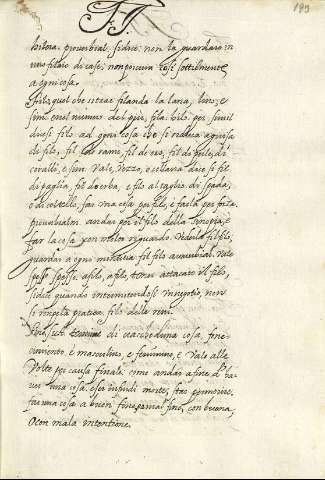 F I
193
hitora. prouerbial. si dice. non la guardare in
uno filare di case, non procurar cosi sottilmente
a ogni cosa.
filo, quel che si trae filando la lana, lino, e
simi. e nel numero del più, fila. & fili. per simil
dicesi filo ad ogni cosa che si riduca a guisa
di filo, fil di rame, fil di oro, fil di perle, di
coralli, e simi. Vale, vezzo, e collana, dice si fil
di paglia, fil d'erba, e filo al taglio di spada,
o di coltello, far una cosa per filo, è farla per forza
prouerbialm. andar per il filo della sinopia, è
far la cosa con molto riguardo. Veder il fil filo,
guardar a ogni minutia fil filo auuerbial. vale
spesso spesso. a filo, a filo, tener attaccato il filo,
si dice quando intermettendosi un negotio, non
si rompe la pratica, filo delle reni.
Fine, scit. termine di ciascheduna cosa, fine
comunemente è masculino, e feminino, e vale alle
volte per causa finale. come andar a fine d'ha-
uer una cosa, esser in fin di morte, far
far una cosa a buon fine, o a mal fine, con buona,
o con mala intentione.